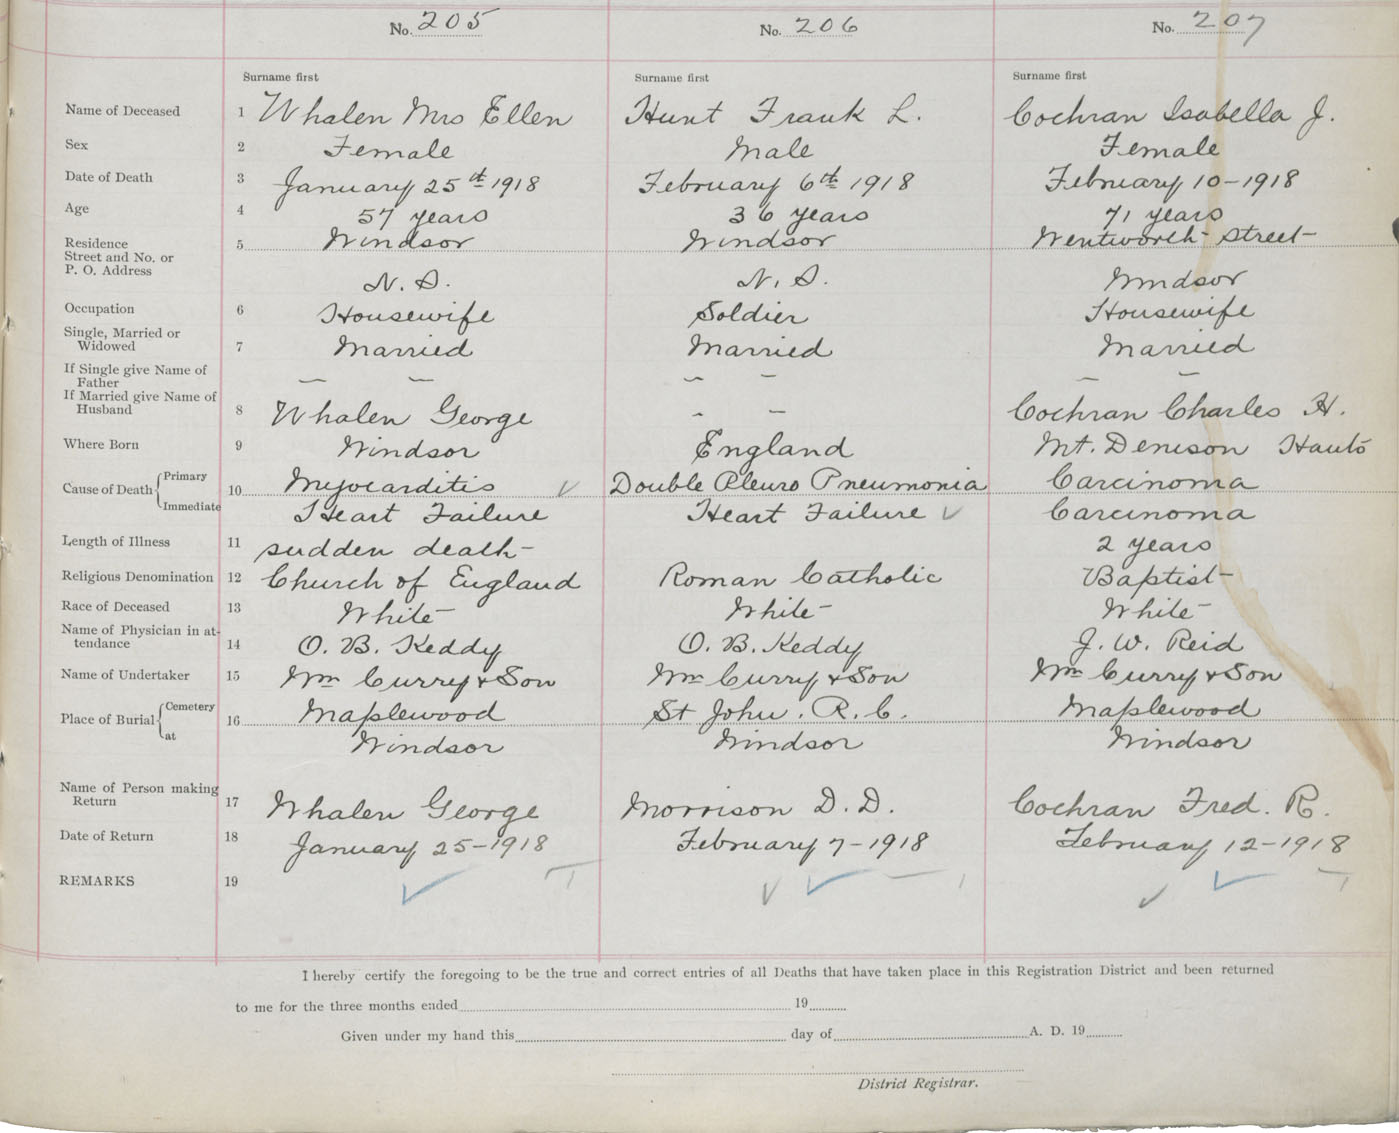 No. 205 No. 206 No. 207
Surname first Surname first Surname first
Name of Deceased 1 Whalen Mrs Ellen Hunt Frank L. Cochran Isabella J.
Sex 2 Female Male Female
Date of Death 3 January 25th 1918 February 6th 1918 February 10-1918
Age 4 57 years 36 years 71 years
Residence 5 Windsor Windsor Wentworth Street
Street and No. or
P. O. Address N.S. N.S. Windsor
Occupation 6 Housewife Soldier Housewife
Single, Married or
Widowed 7 Married Married Married
If Single give Name of
Father — — — — — —
If Married give Name of
Husband 8 Whalen George - - Cochran Charles H.
Where Born 9 Windsor England Mt. Denison Hants
Cause of Death Primary 10 Myocarditis Double Pleuro Pneumonia Carcinoma
Immediate Heart Failure Heart Failure Carcinoma
Length of Illness 11 sudden death 2 years
Religious Denomination 12 Church of England Roman Catholic Baptist
Race of Deceased 13 White White White
Name of Physician in at-
tendance 14 O. B. Keddy O. B. Keddy J. W. Reid
Name of Undertaker 15 Wm Curry & Son Wm Curry & Son Wm Curry & Son
Place of Burial Cemetery 16 Maplewood St John. R. C. Maplewood
at Windsor Windsor Windsor
Name of Person making
Return 17 Whalen George Morrison D. D. Cochran Fred. R.
Date of Return 18 January 25-1918 February 7-1918 February 12-1918
REMARKS 19
I hereby certify the foregoing to be the true and correct entries of all Deaths that have taken place in this Registration District and been returned
to me for the three months ended 19
Given under my hand this day of A. D. 19
District Registrar.